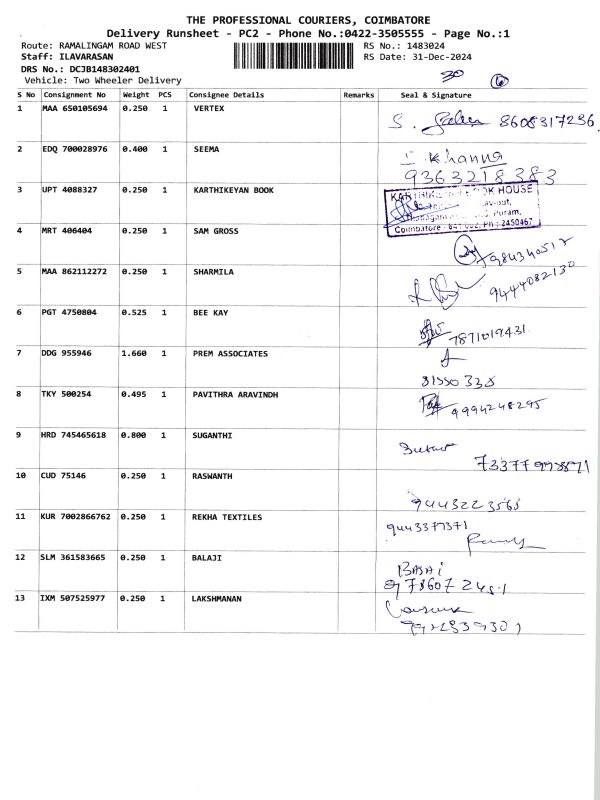 THE PROFESSIONAL COURIERS, COIMBATORE
Delivery Runsheet - PC2 - Phone No.:0422-3505555 - Page No.:1
Route: RAMALINGAM ROAD WEST RS No.: 1483024
Staff: ILAVARASAN RS Date: 31-Dec-2024
DRS No.: DCJB148302401
Vehicle: Two Wheeler Delivery 30 6
S No Consignment No Weight PCS Consignee Details Remarks Seal & Signature
1 MAA 650105694 0.250 1 VERTEX S. 8608317236
2 EDQ 700028976 0.400 1 SEEMA Khanna
9363218383
3 UPT 4088327 0.250 1 KARTHIKEYAN BOOK BOOK HOUSE
Puram,
Coimbatore - 641 002. Ph : 2450467
4 MRT 406404 0.250 1 SAM GROSS
5 MAA 862112272 0.250 1 SHARMILA 9444082130
6 PGT 4750804 0.525 1 BEE KAY 7871019431
7 DDG 955946 1.660 1 PREM ASSOCIATES
8 TKY 500254 0.495 1 PAVITHRA ARAVINDH 9994248295
9 HRD 745465618 0.800 1 SUGANTHI
10 CUD 75146 0.250 1 RASWANTH 9443223568
11 KUR 7002866762 0.250 1 REKHA TEXTILES 9443377371
12 SLM 361583665 0.250 1 BALAJI
13 IXM 507525977 0.250 1 LAKSHMANAN